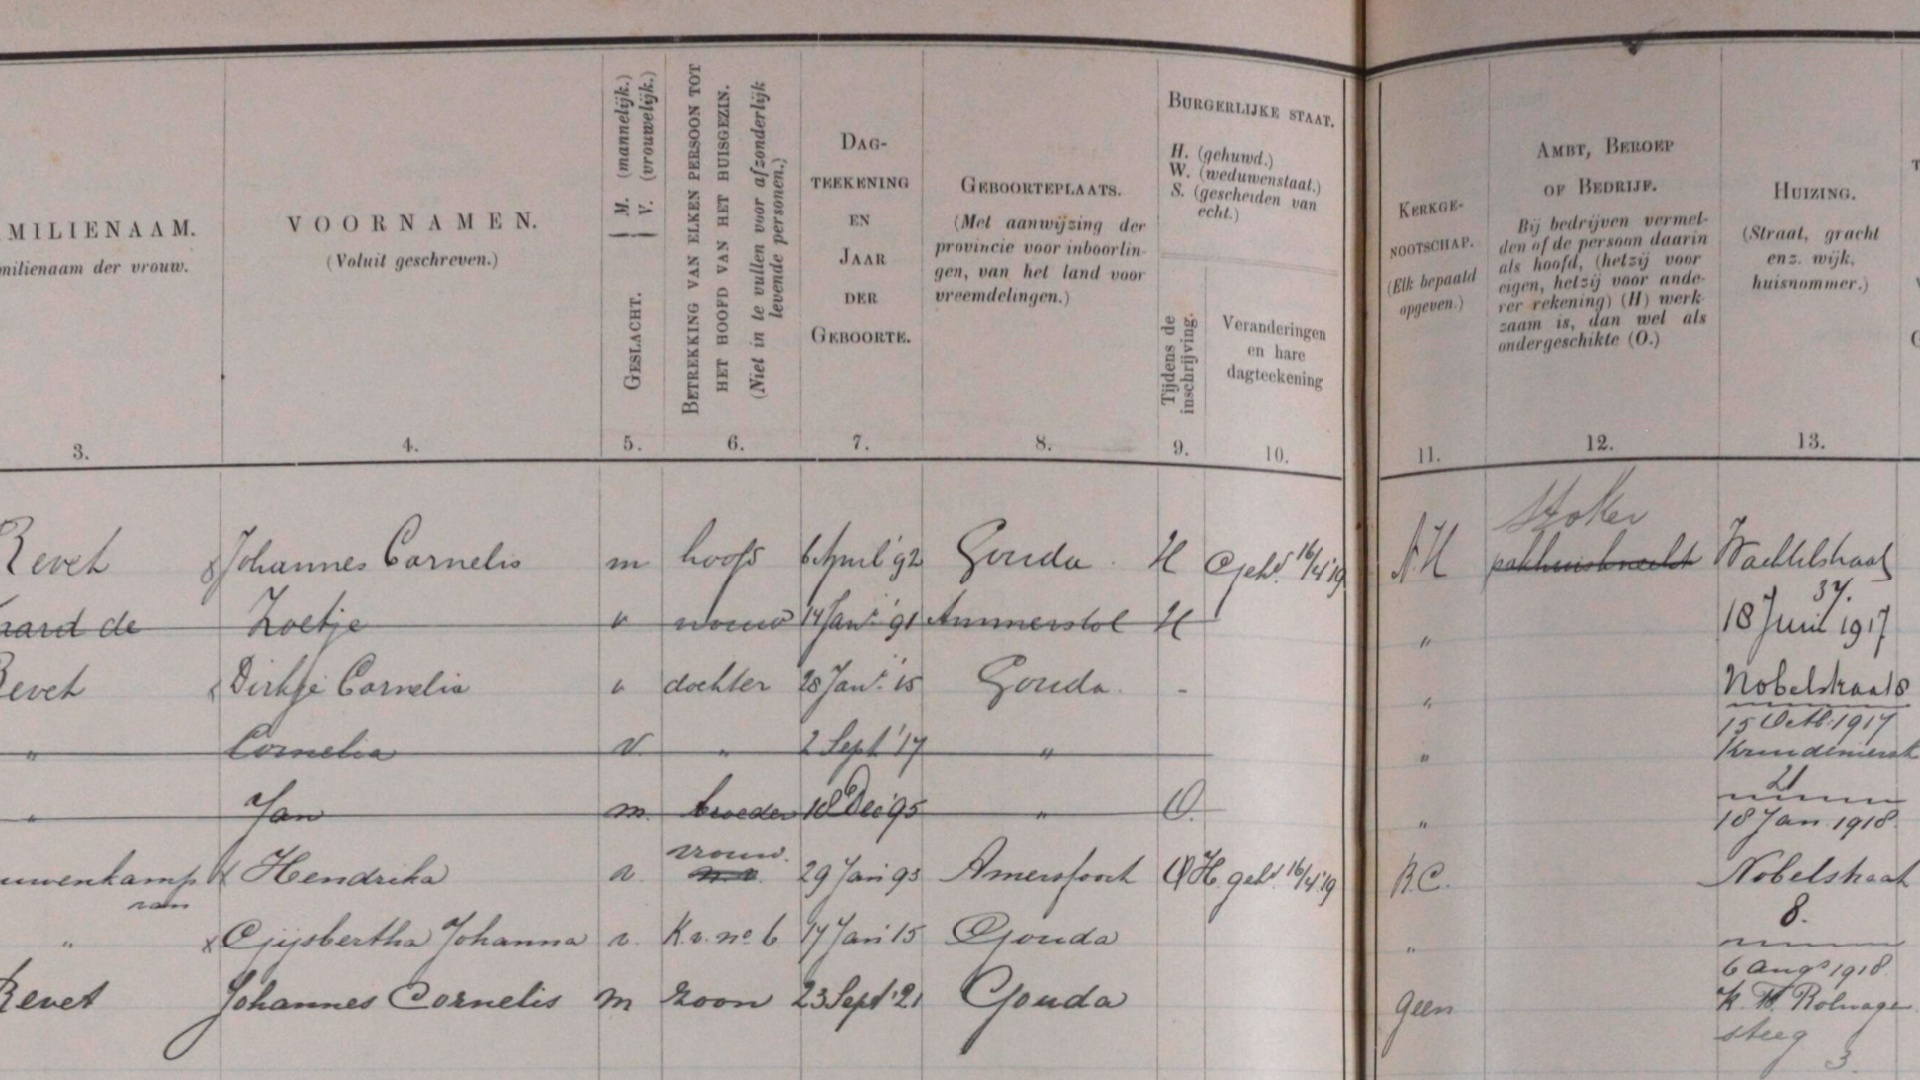 MILIENAAM.
milienaam der vrouw.
3.
VOORNAMEN.
(Voluit geschreven.)
4.
GESLACHT. { M. (mannelijk.)
V. (vrouwelijk.)
5.
BETREKKING VAN ELKEN PERSOON TOT
HET HOOFD VAN HET HUISGEZIN.
(Niet in te vullen voor afzonderlijk
levende personen.)
6.
DAG-
TEEKENING
EN
JAAR
DER
GEBOORTE.
7.
GEBOORTEPLAATS.
(Met aanwijzing der
provincie voor inboorlin-
gen, van het land voor
vreemdelingen.)
8.
BURGERLIJKE STAAT.
H. (gehuwd.)
W. (weduwenstaat.)
S. (gescheiden van
echt.)
Tijdens de
inschrijving.
9.
Veranderingen
en hare
dagteekening
10.
KERKGE-
NOOTSCHAP.
(Elk bepaald
opgeven.)
11.
AMBT, BEROEP
OF BEDRIJF.
Bij bedrijven vermel-
den of de persoon daarin
als hoofd, (hetzij voor
eigen, hetzij voor ande-
rer rekening) (H) werk-
zaam is, dan wel als
ondergeschikte (O.)
12.
HUIZING.
(Straat, gracht
enz. wijk,
huisnommer.)
13.
Revet Johannes Cornelis m hoofd 6 April '92 Gouda. H Gehd. 16/4 '19 N.H. stoker
pakhuisknecht
aard de Zoetje v vrouw 14 Jan. '91 Ammerstol H "
Revet Dirkje Cornelia v dochter 28 Jan. '15 Gouda. - "
" Cornelia v. " 2 Sept '17 " "
" Jan m. broeder 18 Dec '95 " O. "
uwenkamp
van Hendrika v. vrouw. 29 Jan 93 Amersfoort O H. gehd. 16/4 '19 R.C.
" Gijsbertha Johanna v. K.v. no 6 17 Jan 15 Gouda "
Revet Johannes Cornelis m zoon 23 Sept '21 Gouda geen
Wachtelstraat
37.
18 Juni 1917
Nobelstraat 8
15 Octb. 1917
21
18 Jan. 1918
Nobelstraat
8.
6 Augs 1918.
steeg
3